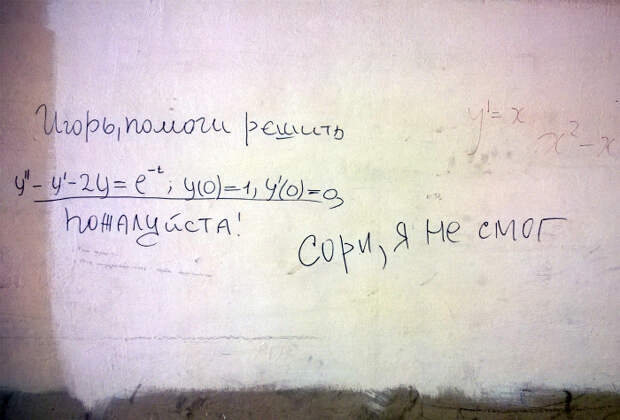 Игорь, помоги решить
y''- y'- 2y = e^-t; y(0)=1, y'(0)=0
пожалуйста!
сори, я не смог
y' = x
x² - x